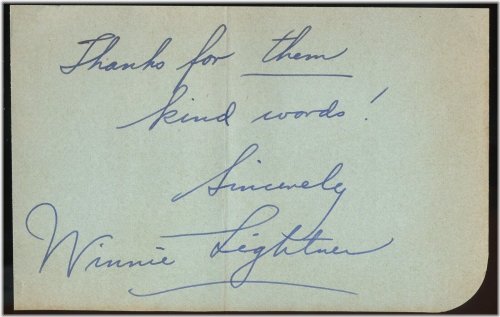 Thanks for them
kind words!
Sincerely
Winnie Lightner